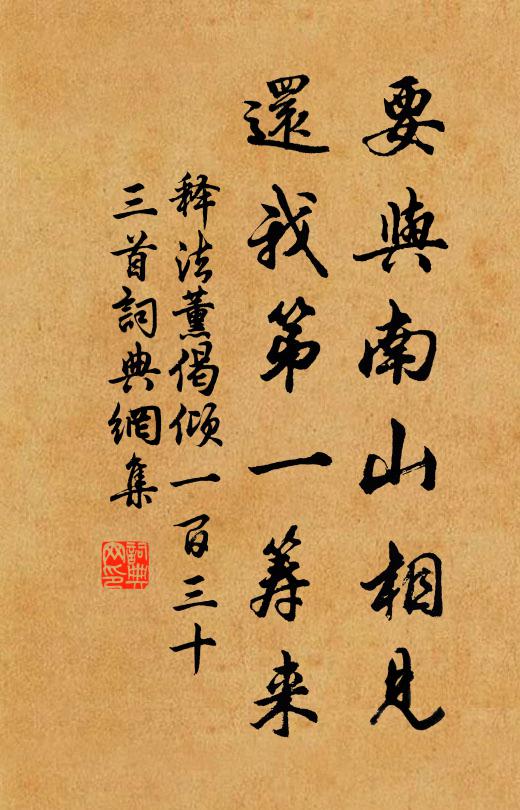 要與南山相見
還我第一筹来
释法薰偈倾一百三十
三首詞典網集
詞典
网印